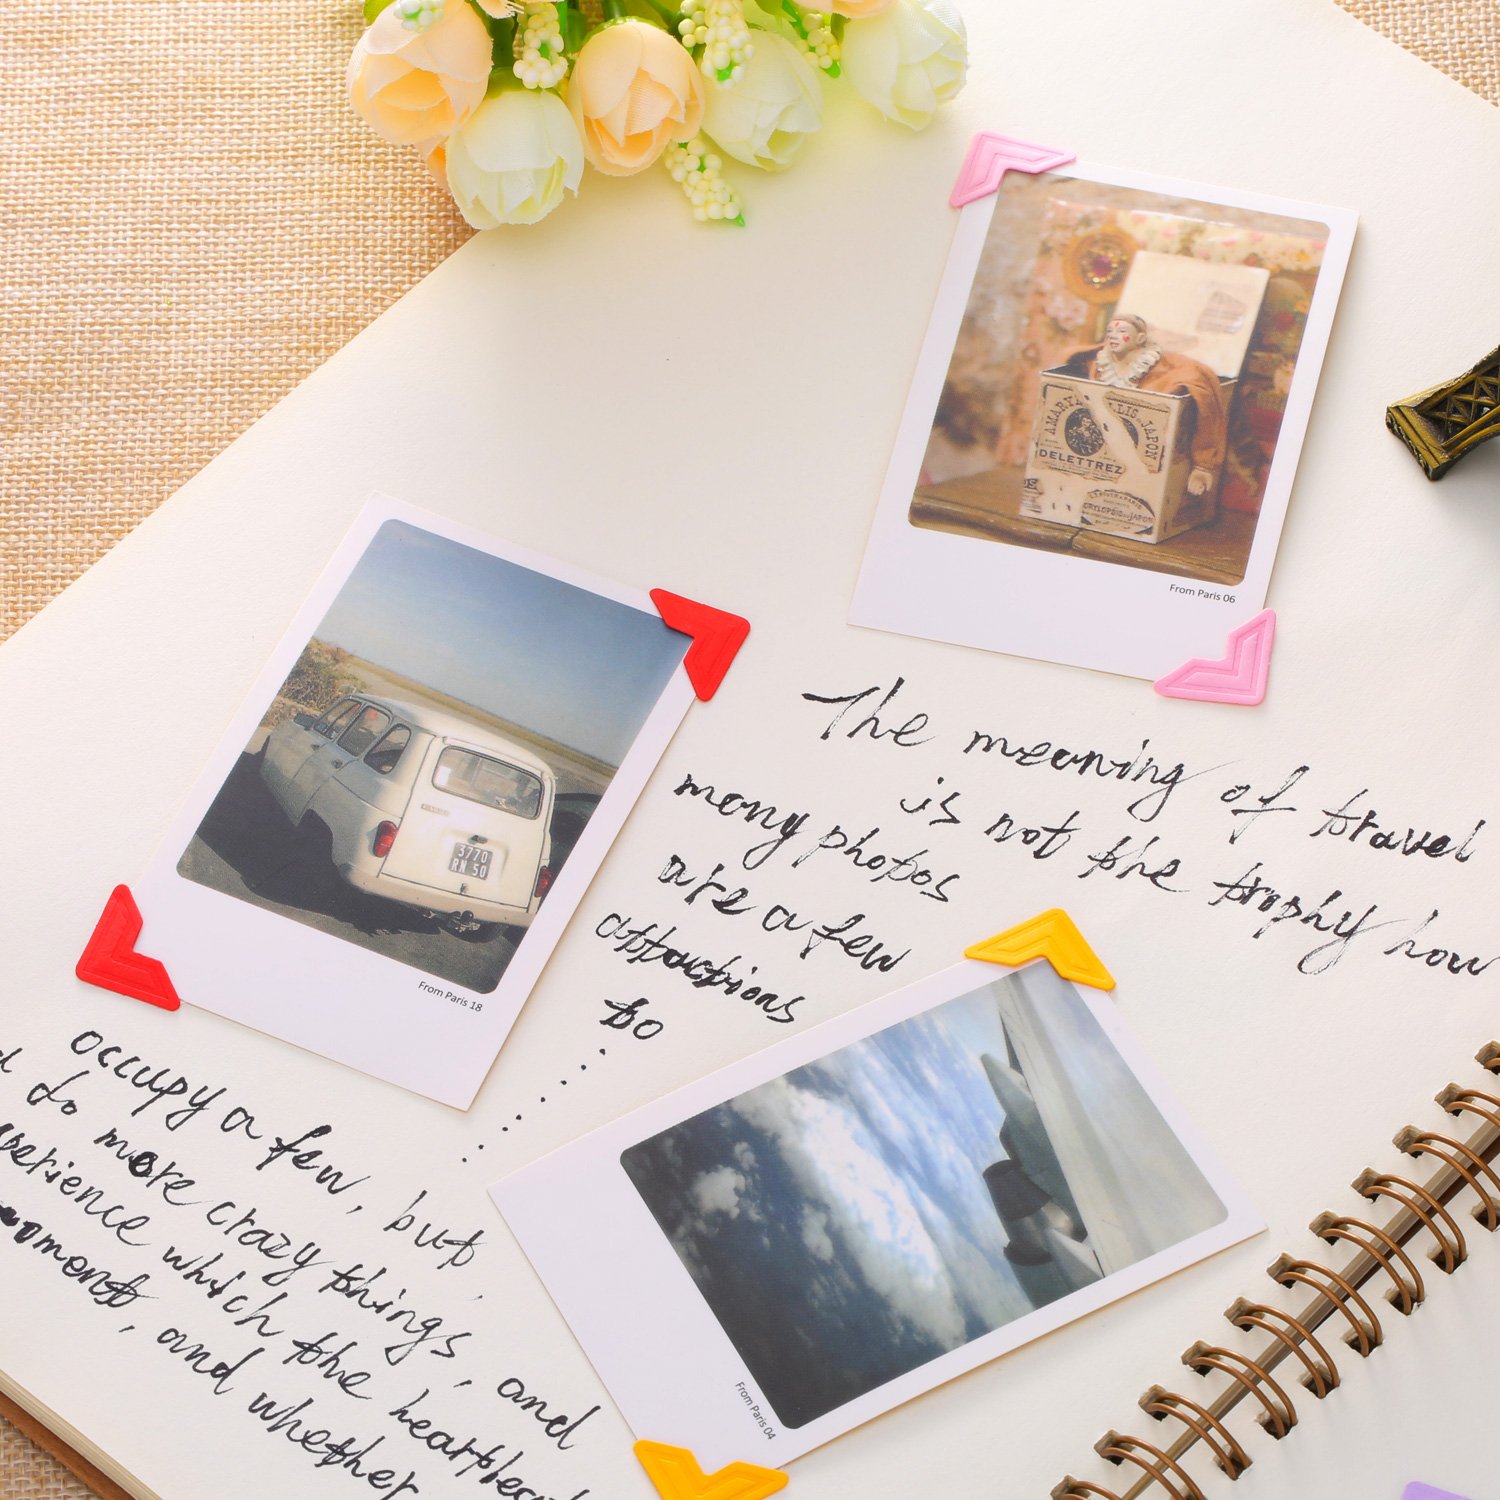 AMARY LLIS DU JAPON
DELETTREZ
From Paris 06
3770
RN 50
From Paris 18
The meaning of travel
is not the trophy how
many photos
are a few
attactions
to
......
occupy a few, but,
do more crazy things, and
which the
and whether
From Paris 04